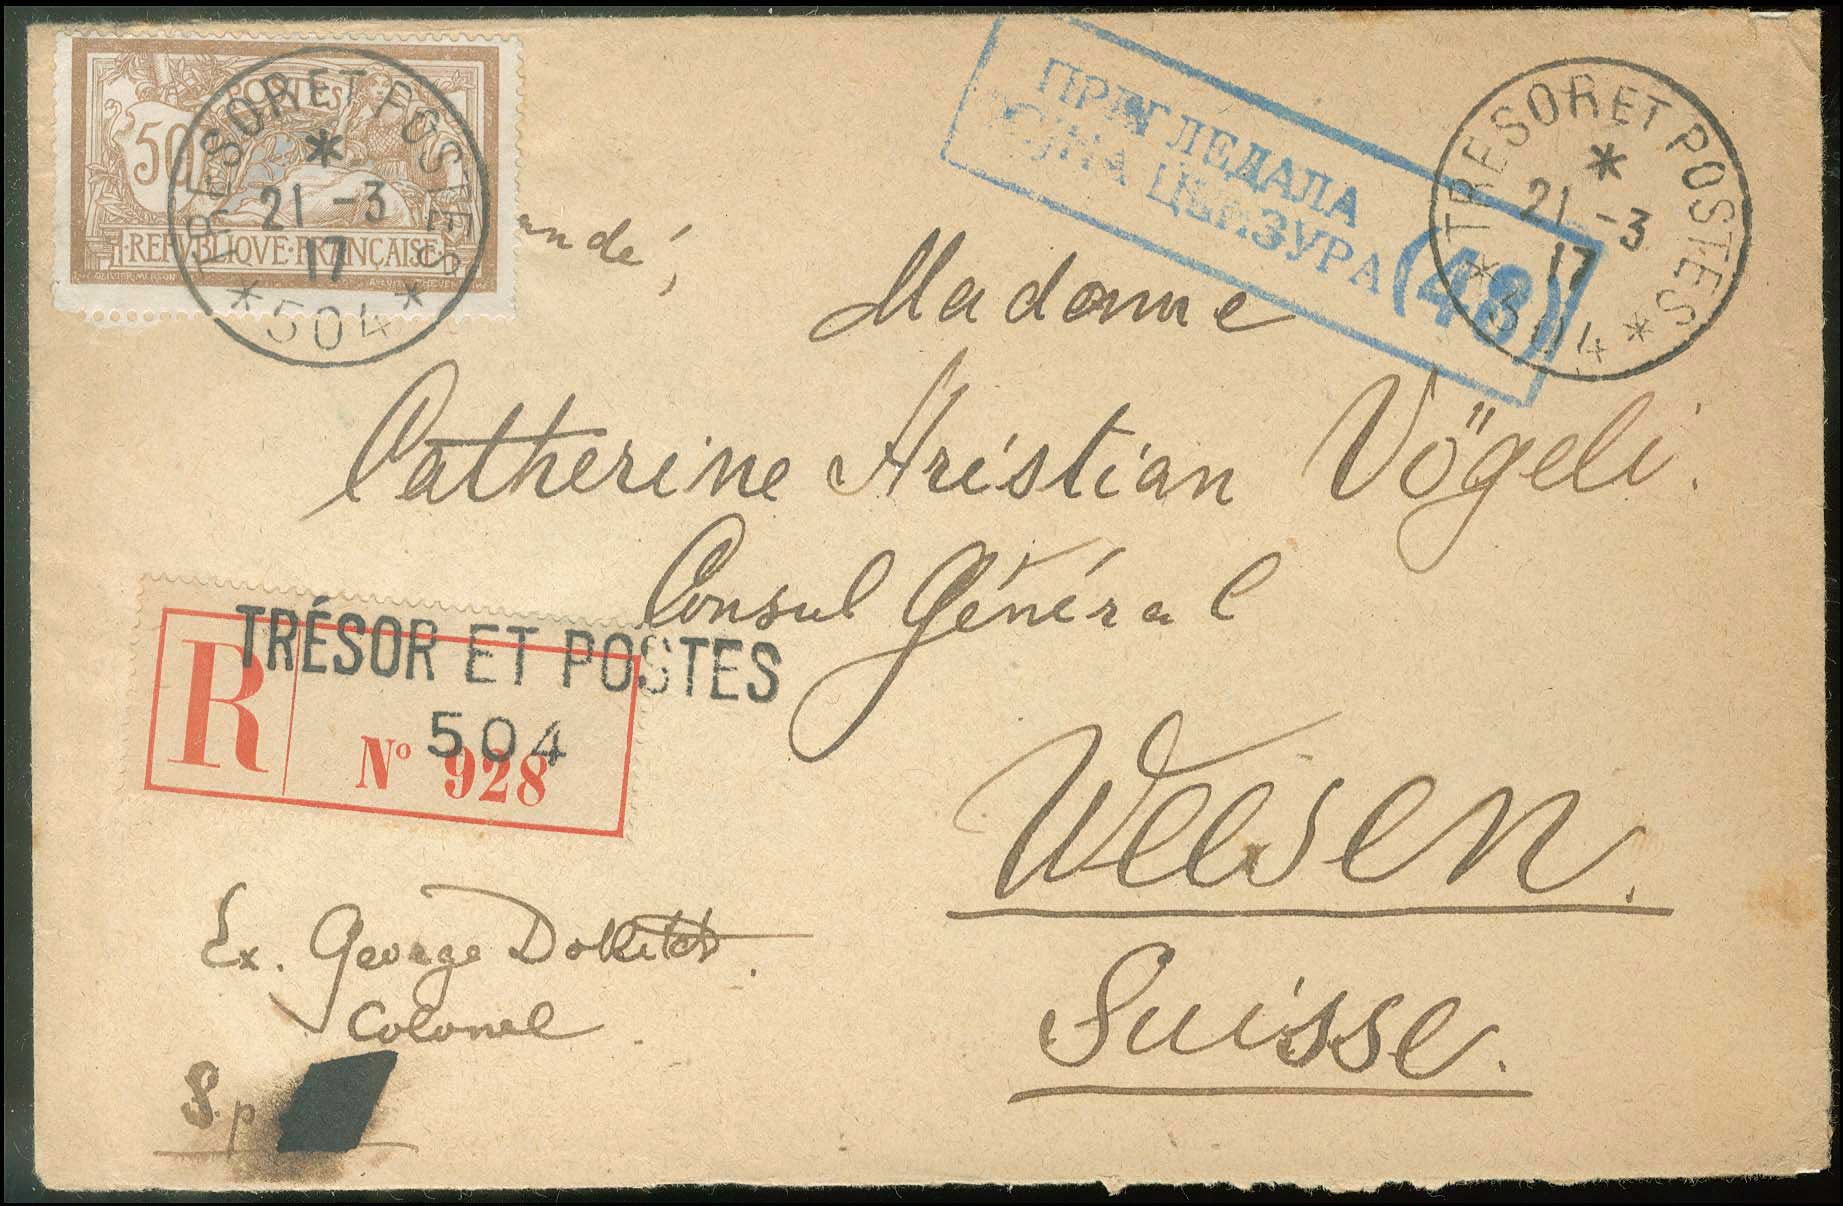 POSTES
50
REPVBLIQVE·FRANÇAISE
TRESOR ET POSTES
*
21 -3
17
* 504 *
ПРЕГЛЕДАЛА
ЦЕНЗУРА (48)
TRESOR ET POSTES
*
21 -3
17
* 504 *
andé,
Madame
Catherine Hristian Vögeli.
Consul Général
Weesen.
Suisse.
TRÉSOR ET POSTES
504
R
Nº 928
Ex. George
Colonel.
S. p